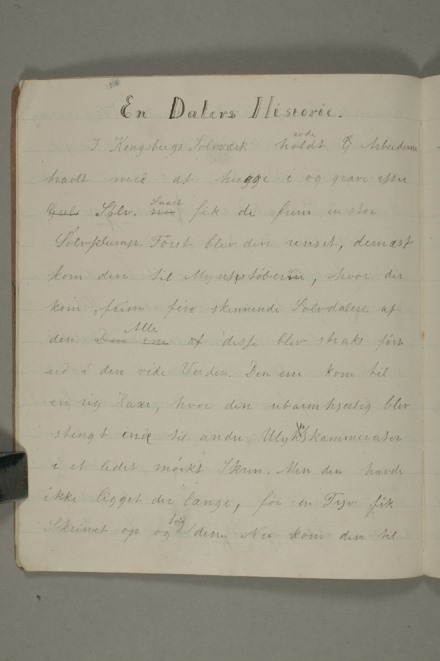 En Dalers Historie.
I Kongsbergs Sølvværk holdt Arbeiderne
havdt med at hugge i og grave efter
Guld Sølv. Snart fik de frem en stor
Sølvklump. Først blev den renset, dernæst
kom den til Myntstøberiet, hvor der
kom frem fire skinnende Sølvdalere af
den. Den ene af Alle disse blev straks ført
ud i den vide Verden. Den ene kom til
en rig Mand, hvor den ubarmhjertig blev
stengt inde til andre Ulykkeskammerater
i et lidet mørkt Skrin. Men den havde
ikke ligget der længe, før en Tyv fik
Skrinet op og tog den. Nu kom den til